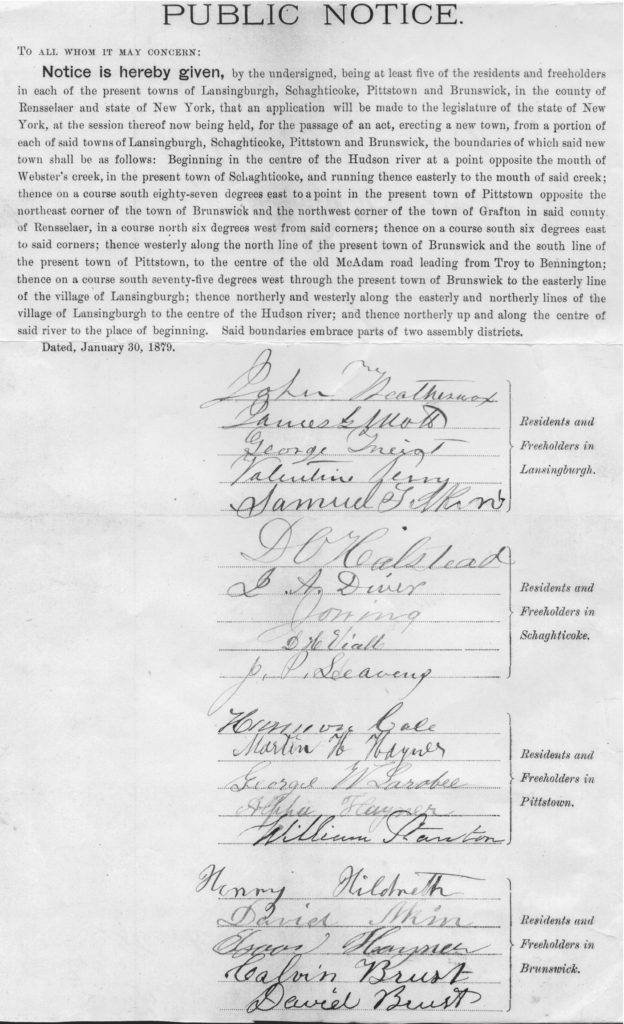 PUBLIC NOTICE.
TO ALL WHOM IT MAY CONCERN:
Notice is hereby given, by the undersigned, being at least five of the residents and freeholders
in each of the present towns of Lansingburgh, Schaghticoke, Pittstown and Brunswick, in the county of
Rensselaer and state of New York, that an application will be made to the legislature of the state of New
York, at the session thereof now being held, for the passage of an act, erecting a new town, from a portion of
each of said towns of Lansingburgh, Schaghticoke, Pittstown and Brunswick, the boundaries of which said new
town shall be as follows: Beginning in the centre of the Hudson river at a point opposite the mouth of
Webster's creek, in the present town of Schaghticoke, and running thence easterly to the mouth of said creek;
thence on a course south eighty-seven degrees east to a point in the present town of Pittstown opposite the
northeast corner of the town of Brunswick and the northwest corner of the town of Grafton in said county
of Rensselaer, in a course north six degrees west from said corners; thence on a course south six degrees east
to said corners; thence westerly along the north line of the present town of Brunswick and the south line of
the present town of Pittstown, to the centre of the old McAdam road leading from Troy to Bennington;
thence on a course south seventy-five degrees west through the present town of Brunswick to the easterly line
of the village of Lansingburgh; thence northerly and westerly along the easterly and northerly lines of the
village of Lansingburgh to the centre of the Hudson river; and thence northerly up and along the centre of
said river to the place of beginning. Said boundaries embrace parts of two assembly districts.
Dated, January 30, 1879.
John Weatherwax
James Mott
George
Valentine
Samuel
Residents and
Freeholders in
Lansingburgh.
D O Halstead
A. Diver
D H Viall
J. P.
Residents and
Freeholders in
Schaghticoke.
Martin H Hayner
George W Larobee
Hayner
William Stanton
Residents and
Freeholders in
Pittstown.
Henry Hildreth
David Akin
Hayner
Calvin Brust
David Brust
Residents and
Freeholders in
Brunswick.